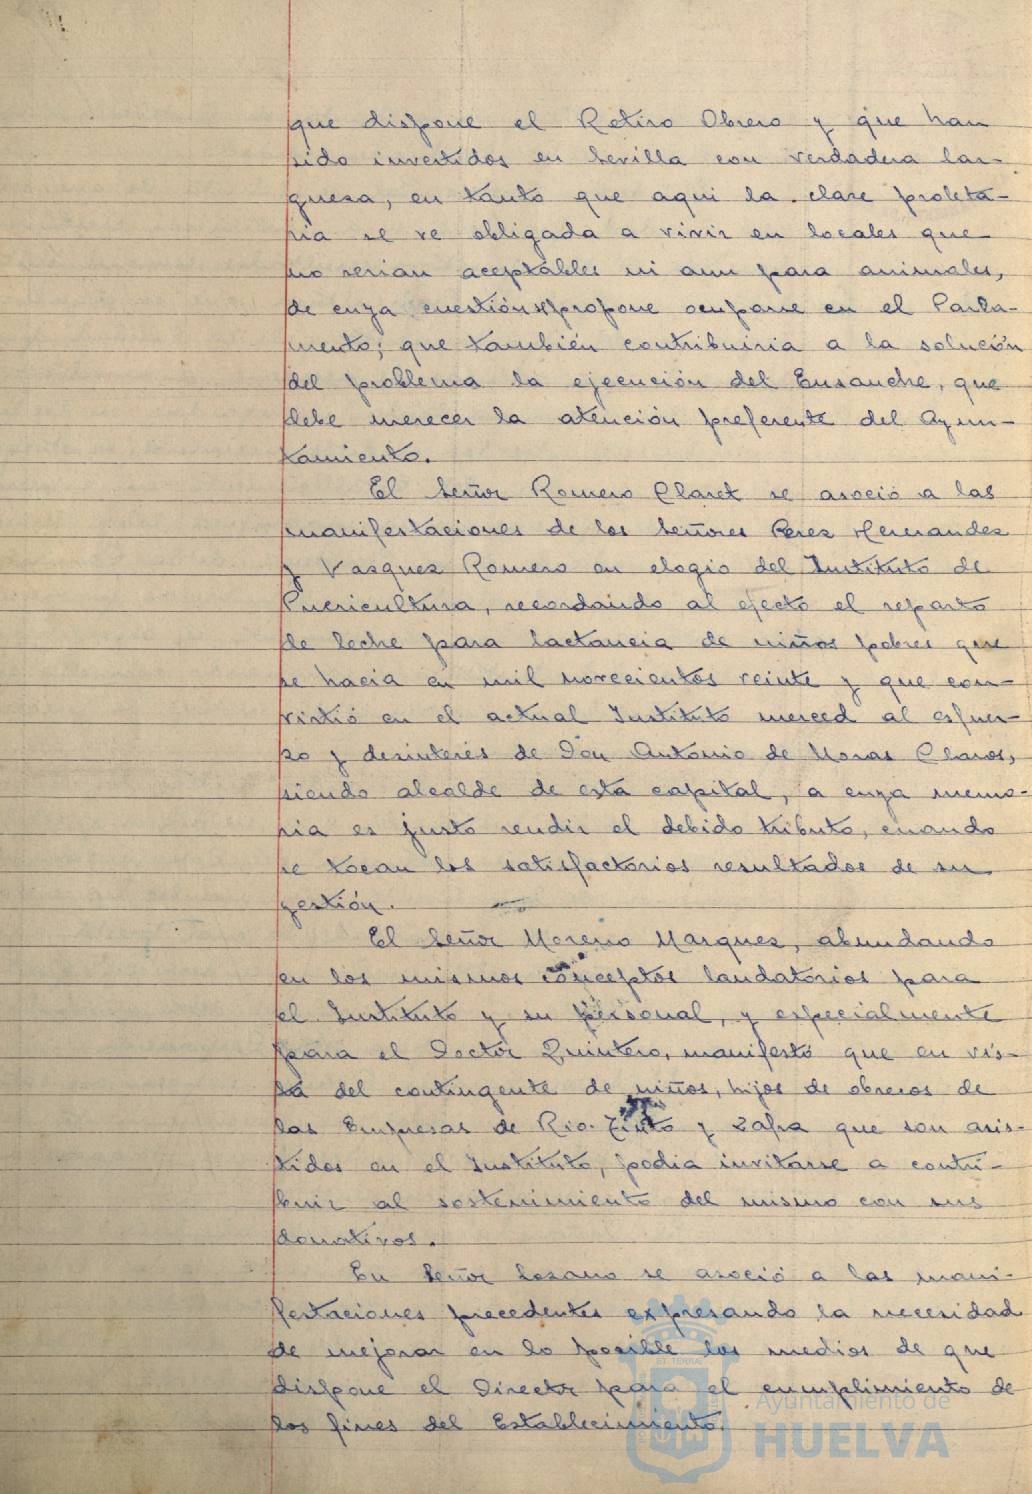 que dispone el Retiro Obrero y que han
sido invertidos en Sevilla con verdadera lar-
guesa, en tanto que aqui la clase proleta-
ria se ve obligada a vivir en locales que
no serian aceptables ni aun para animales,
de cuya cuestión propone ocuparse en el Parla-
mento; que también contribuiria a la solución
del problema la ejecución del Ensanche, que
debe merecer la atención preferente del Ayun-
tamiento.
El Señor Romero Claret se asoció a las
manifestaciones de los Señores Perez Hernandez
y Vasquez Romero en elogio del Instituto de
Puericultura, recordando al efecto el reparto
de leche para lactancia de niños pobres que
se hacia en mil novecientos veinte y que con-
virtió en el actual Instituto merced al esfuer-
zo y desinterés de Don Antonio de Moras Claros,
siendo alcalde de esta capital, a cuya memo-
ria es justo rendir el debido tributo, cuando
se tocan los satisfactorios resultados de su
gestión.
El Señor Moreno Marquez, abundando
en los mismos conceptos laudatorios para
el Instituto y su personal, y especialmente
para el Doctor Quintero, manifestó que en vis-
ta del contingente de niños, hijos de obreros de
las Empresas de Rio-Tinto y Zafra que son asis-
tidos en el Instituto, podia invitarse a contri-
buir al sostenimiento del mismo con sus
donativos.
En Señor Lozano se asoció a las mani-
festaciones precedentes expresando la necesidad
de mejorar en lo posible los medios de que
dispone el Director para el cumplimiento de
los fines del Establecimiento.
Ayuntamiento de
HUELVA